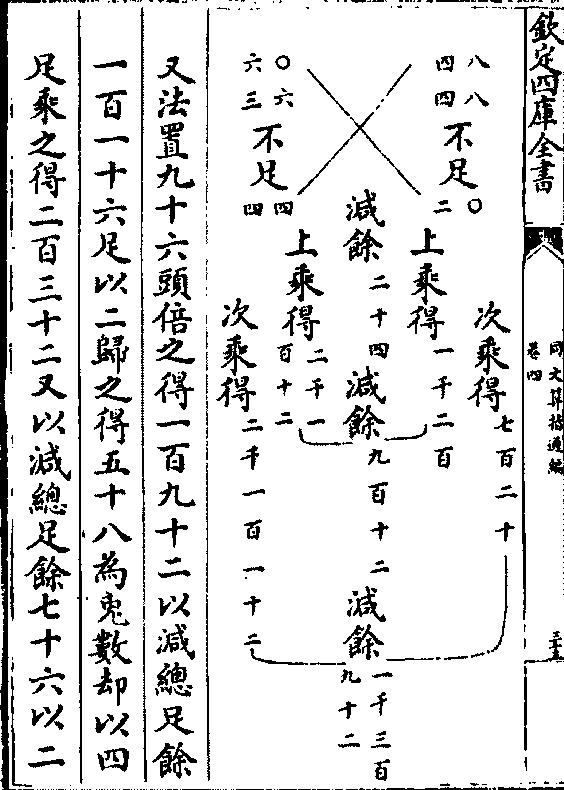 欽定四庫全書
同文算指通編
卷四
八八
四四
不足
〇
二
次乘得七百二十
上乘得一千二百
減餘二十四
減餘九百十二
減餘一千三百
九十二
〇六
六三
不足
四
四
上乘得二千一
百十二
次乘得二千一百一十二
又法置九十六頭倍之得一百九十二以減總足餘
一百一十六足以二歸之得五十八為兎數却以四
足乘之得二百三十二又以減總足餘七十六以二